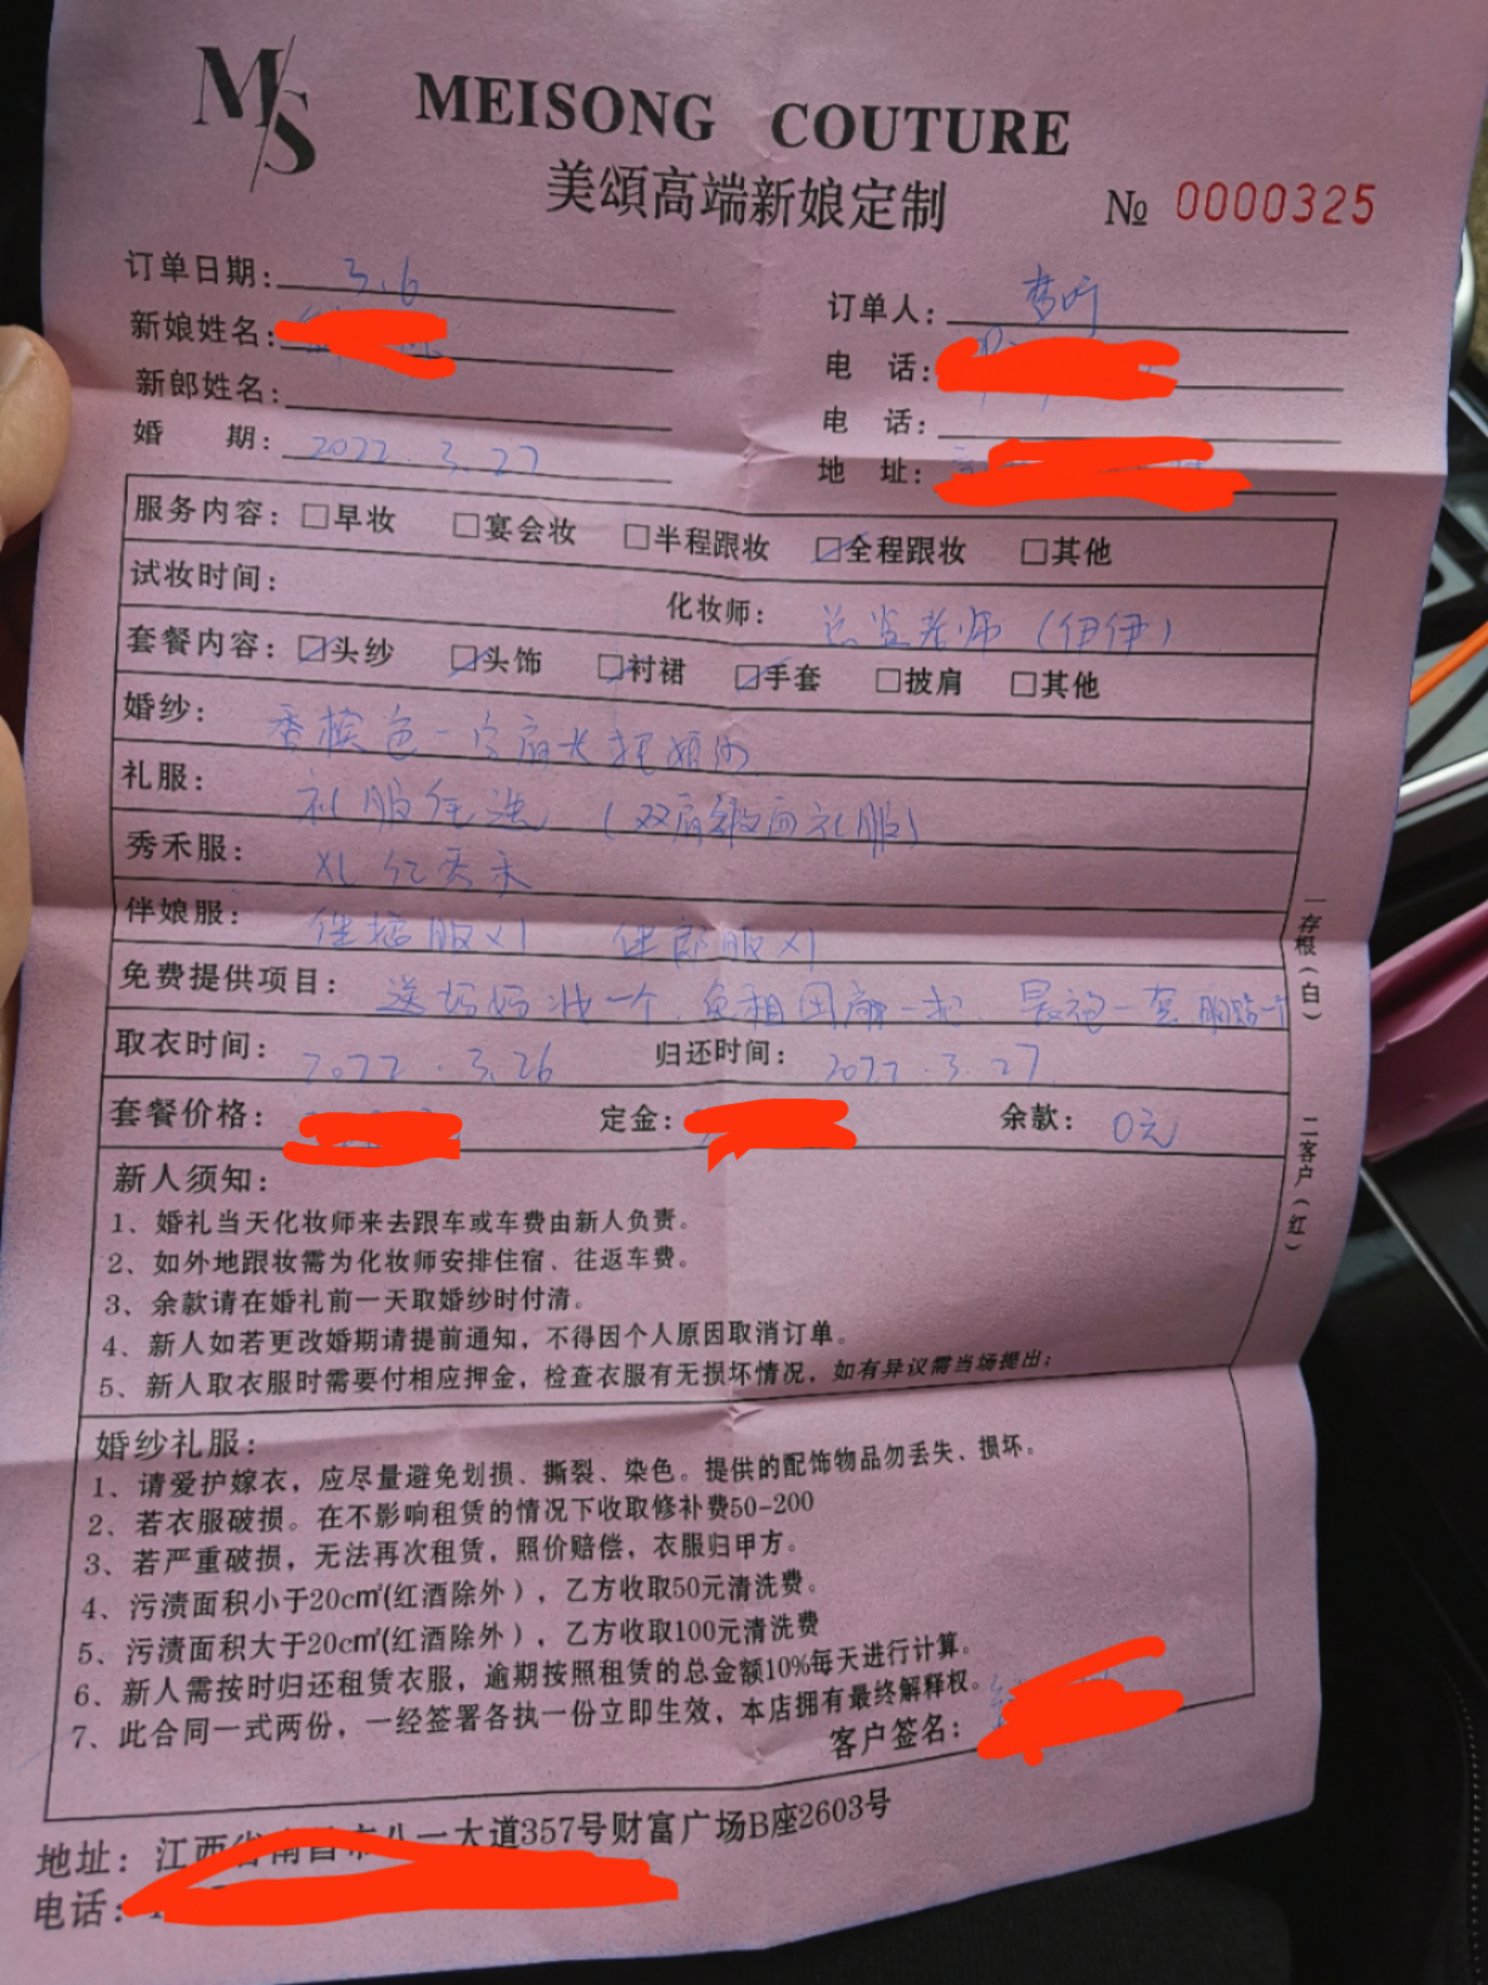 MS
MEISONG COUTURE
美頌高端新娘定制
№ 0000325
订单日期: 3.6 订单人: 梦昕
新娘姓名: 电 话:
新郎姓名: 电 话:
婚 期: 2022.3.27 地 址:
服务内容: □早妆 □宴会妆 □半程跟妆 ☑全程跟妆 □其他
试妆时间: 化妆师: 总监老师(伊伊)
套餐内容: ☑头纱 ☑头饰 ☑衬裙 ☑手套 □披肩 □其他
婚纱: 香槟色一字肩大拖婚纱
礼服: 礼服任选 (双肩缎面礼服)
秀禾服: XL 红秀禾
伴娘服: 伴娘服X1 伴郎服X1
免费提供项目: 送妈妈妆一个. 免租团扇一把. 晨袍一套 胸贴一个
取衣时间: 2022.3.26 归还时间: 2022.3.27
套餐价格: 定金: 余款: 0元
新人须知:
1、婚礼当天化妆师来去跟车或车费由新人负责。
2、如外地跟妆需为化妆师安排住宿、往返车费。
3、余款请在婚礼前一天取婚纱时付清。
4、新人如若更改婚期请提前通知，不得因个人原因取消订单。
5、新人取衣服时需要付相应押金，检查衣服有无损坏情况，如有异议需当场提出;
婚纱礼服:
1、请爱护嫁衣，应尽量避免划损、撕裂、染色。提供的配饰物品勿丢失、损坏。
2、若衣服破损。在不影响租赁的情况下收取修补费50-200
3、若严重破损，无法再次租赁，照价赔偿，衣服归甲方。
4、污渍面积小于20c㎡(红酒除外)，乙方收取50元清洗费。
5、污渍面积大于20c㎡(红酒除外)，乙方收取100元清洗费
6、新人需按时归还租赁衣服，逾期按照租赁的总金额10%每天进行计算。
7、此合同一式两份，一经签署各执一份立即生效，本店拥有最终解释权。
客户签名:
一存根(白)
二客户(红)
地址: 江西省南昌市八一大道357号财富广场B座2603号
电话: